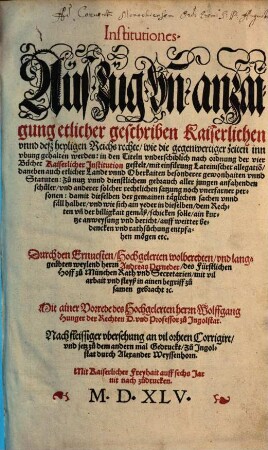 Institutiones.
Auszug vn̄ anzai
gung etlicher geschriben Kaiserlichen
vnnd desz heyligen Reichs rechte/ wie die gegenwertiger zeiten inn
vbung gehalten werden: in den Titeln vnderschidlich nach ordnung der vier
Bücher Kaiserlicher Institution gestelt/ mit einfürung Lateinischer allegatiō
daneben auch etlicher Lande vnnd Oberkaiten besonderer gewonhaiten vnnd
Statuten: Zů nutz vnnd dienstlichem gebrauch aller jungen anfahenden
schůler/ vnd anderer solcher rechtlichen satzung noch vnerfarner per-
sonen: damit dieselben der gemainen täglichen sachen vnnd
fäll halber/ vnd wie sich ain yeder in dieselben/ dem Rech-
ten vn̄ der billigkait gemäß/ schicken solle/ ain kur-
tze anweysung vnd bericht/ auff weitter be-
dencken vnd rathsůchung entpfa-
hen mögen etc.
Durch den Ernuesten/ Hochgelerten wolberedten/ vnd lang-
geübten weylend herrn Andreas Perneder/ des Fürstlichen
Hoff zů München Rath vnd Secretarien/ mit vil
arbait vnd fleyß in ainen begriff zů
samen gebracht etc.
Mit ainer Vorrede des Hochgelerten herrn Wolffgang
Hunger der Rechten D. vnd Professor zů Ingolstat.
Nach fleissiger vbersehung an vil orthen Corrigirt/
vnd yetz zů dem andern mal Gedruckt/ Zů Ingol-
stat durch Alexander Weyssenhorn.
Mit Kaiserlicher Freyhait auff sechs Jar
nit nach zůdrucken.
M. D. XLV.